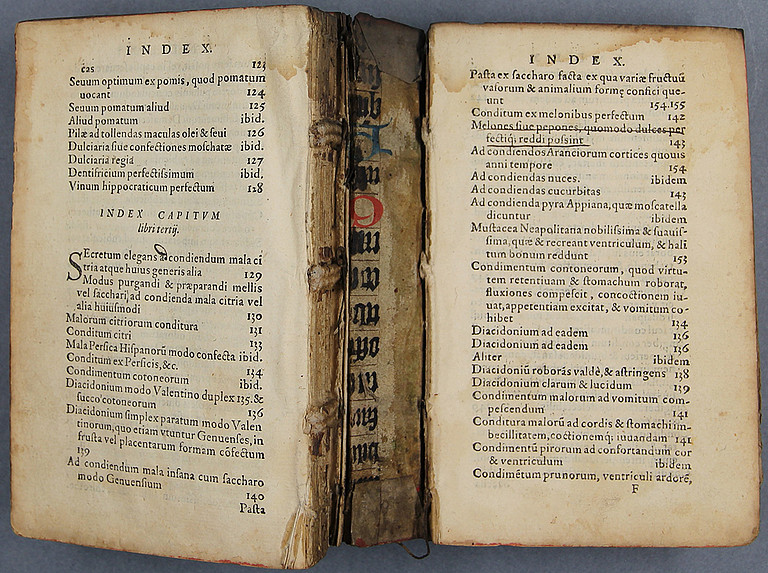 INDEX.
cas 123
Seuum optimum ex pomis, quod pomatum
uocant 124
Seuum pomatum aliud 125
Aliud pomatum ibid.
Pilæ ad tollendas maculas olei & seui 126
Dulciaria siue confectiones moschatæ ibid.
Dulciaria regia 127
Dentifricium perfectissimum ibid.
Vinum hippocraticum perfectum 128
INDEX CAPITVM
libri tertij.
SEcretum elegans ad condiendum mala ci
tria atque huius generis alia 129
Modus purgandi & præparandi mellis
vel sacchari, ad condienda mala citria vel
alia huiusmodi 130
Malorum citriorum conditura 131
Conditum citri 133
Mala Persica Hispanorũ modo confecta ibid.
Conditum ex Persicis, &c. 134
Condimentum cotoneorum ibid.
Diacidonium modo Valentino duplex 135. &
succo cotoneorum 136
Diacidonium simplex paratum modo Valen
tinorum, quo etiam vtuntur Genuenses, in
frusta vel placentarum formam cõfectum
139
Ad condiendum mala insana cum saccharo
modo Genuensium 140
Pasta
INDEX.
Pasta ex saccharo facta ex qua variæ fructuũ
vasorum & animalium formę confici que-
unt 154.155
Conditum ex melonibus perfectum 142
Melones siue pepones, quomodo dulces per
fectiq; reddi possint 143
Ad condiendos Aranciorum cortices quouis
anni tempore 154
Ad condiendas nuces. ibidem
Ad condiendas cucurbitas 143
Ad condienda pyra Appiana, quæ moscatella
dicuntur ibidem
Mustacea Neapolitana nobilissima & suauis-
sima, quæ & recreant ventriculum, & hali
tum bonum reddunt 153
Condimentum contoneorum, quod virtu-
tem retentiuam & stomachum roborat,
fluxiones compescit, concoctionem iu-
uat, appetentiam excitat, & vomitum co-
hibet 134
Diacidonium ad eadem 136
Diacidonium ad eadem 136
Aliter ibidem
Diacidoniũ roborãs valdè, & astringens 138
Diacidonium clarum & lucidum 139
Condimentum malorum ad vomitum com-
pescendum 141
Conditura malorũ ad cordis & stomachi im-
becillitatem, coctionemq; iuuandam 141
Condimentũ pirorum ad confortandum cor
& ventriculum ibidem
Condimẽtum prunorum, ventriculi ardorẽ,
F